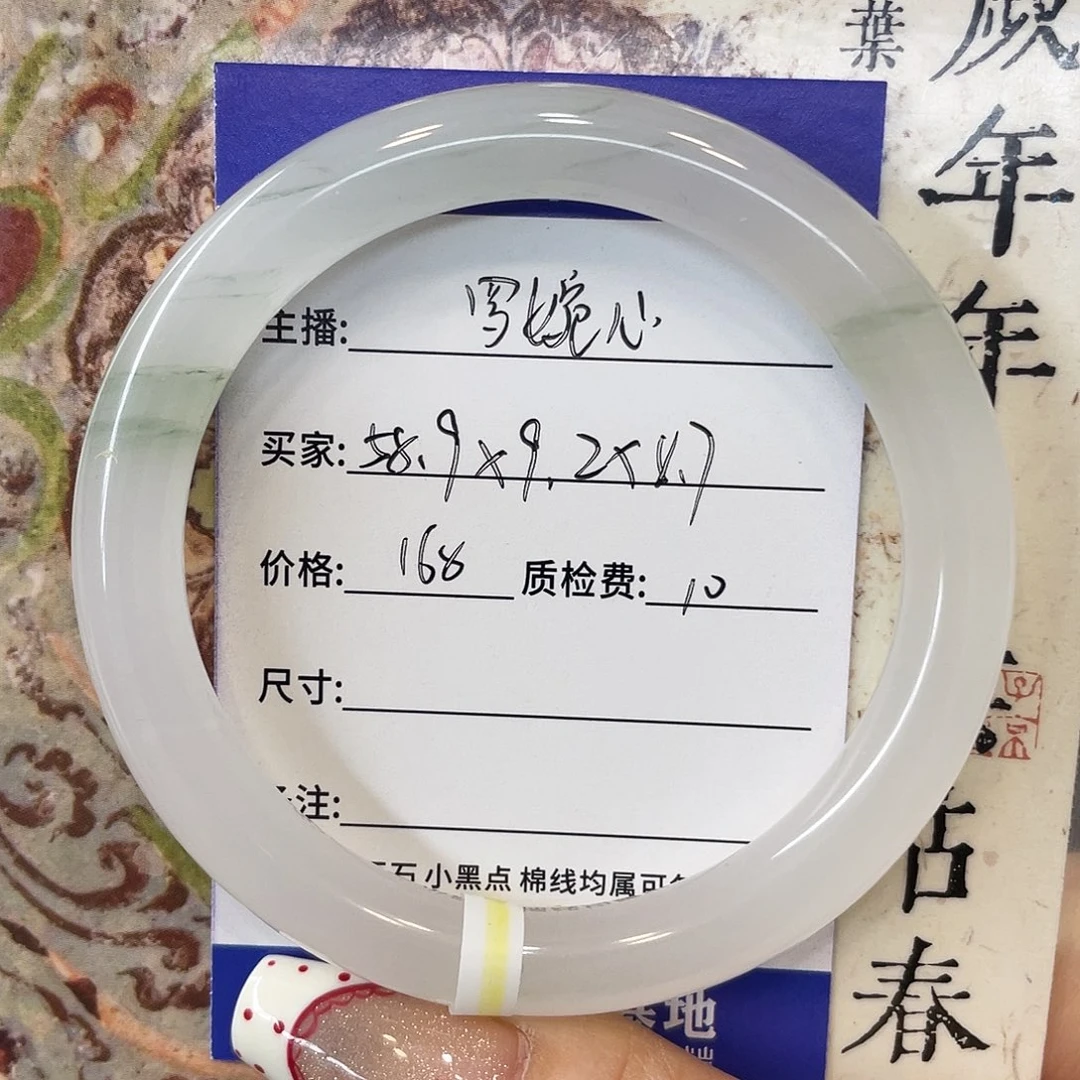 主播: 罗婉心
买家: 58.9×9.2×8.7
价格: 168 质检费: 10
尺寸:
注:
石 小黑点 棉线均属可
地
葉
年
年
古
春